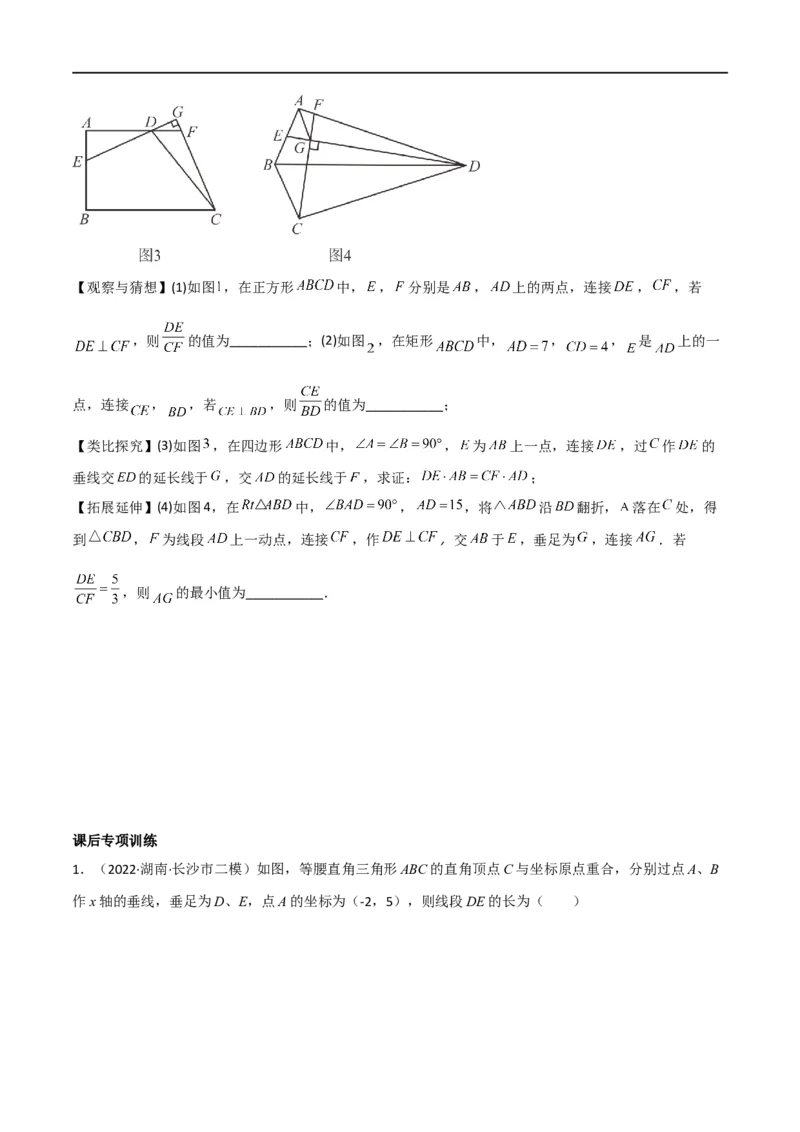 A D G F E B C
A F E G B D C
图3 图4
【观察与猜想】(1)如图1，在正方形ABCD中，E，F分别是AB，AD上的两点，连接DE，CF，若
DE⊥CF，则DE/CF的值为___________；(2)如图2，在矩形ABCD中，AD=7，CD=4，E是AD上的一
点，连接CE，BD，若CE⊥BD，则CE/BD的值为___________；
【类比探究】(3)如图3，在四边形ABCD中，∠A=∠B=90°，E为AB上一点，连接DE，过C作DE的
垂线交ED的延长线于G，交AD的延长线于F，求证：DE·AB=CF·AD；
【拓展延伸】(4)如图4，在Rt△ABD中，∠BAD=90°，AD=15，将△ABD沿BD翻折，A落在C处，得
到△CBD，F为线段AD上一动点，连接CF，作DE⊥CF，交AB于E，垂足为G，连接AG．若
DE/CF=5/3，则AG的最小值为___________．
课后专项训练
1．（2022·湖南·长沙市二模）如图，等腰直角三角形ABC的直角顶点C与坐标原点重合，分别过点A、B
作x轴的垂线，垂足为D、E，点A的坐标为（-2，5），则线段DE的长为（　　）